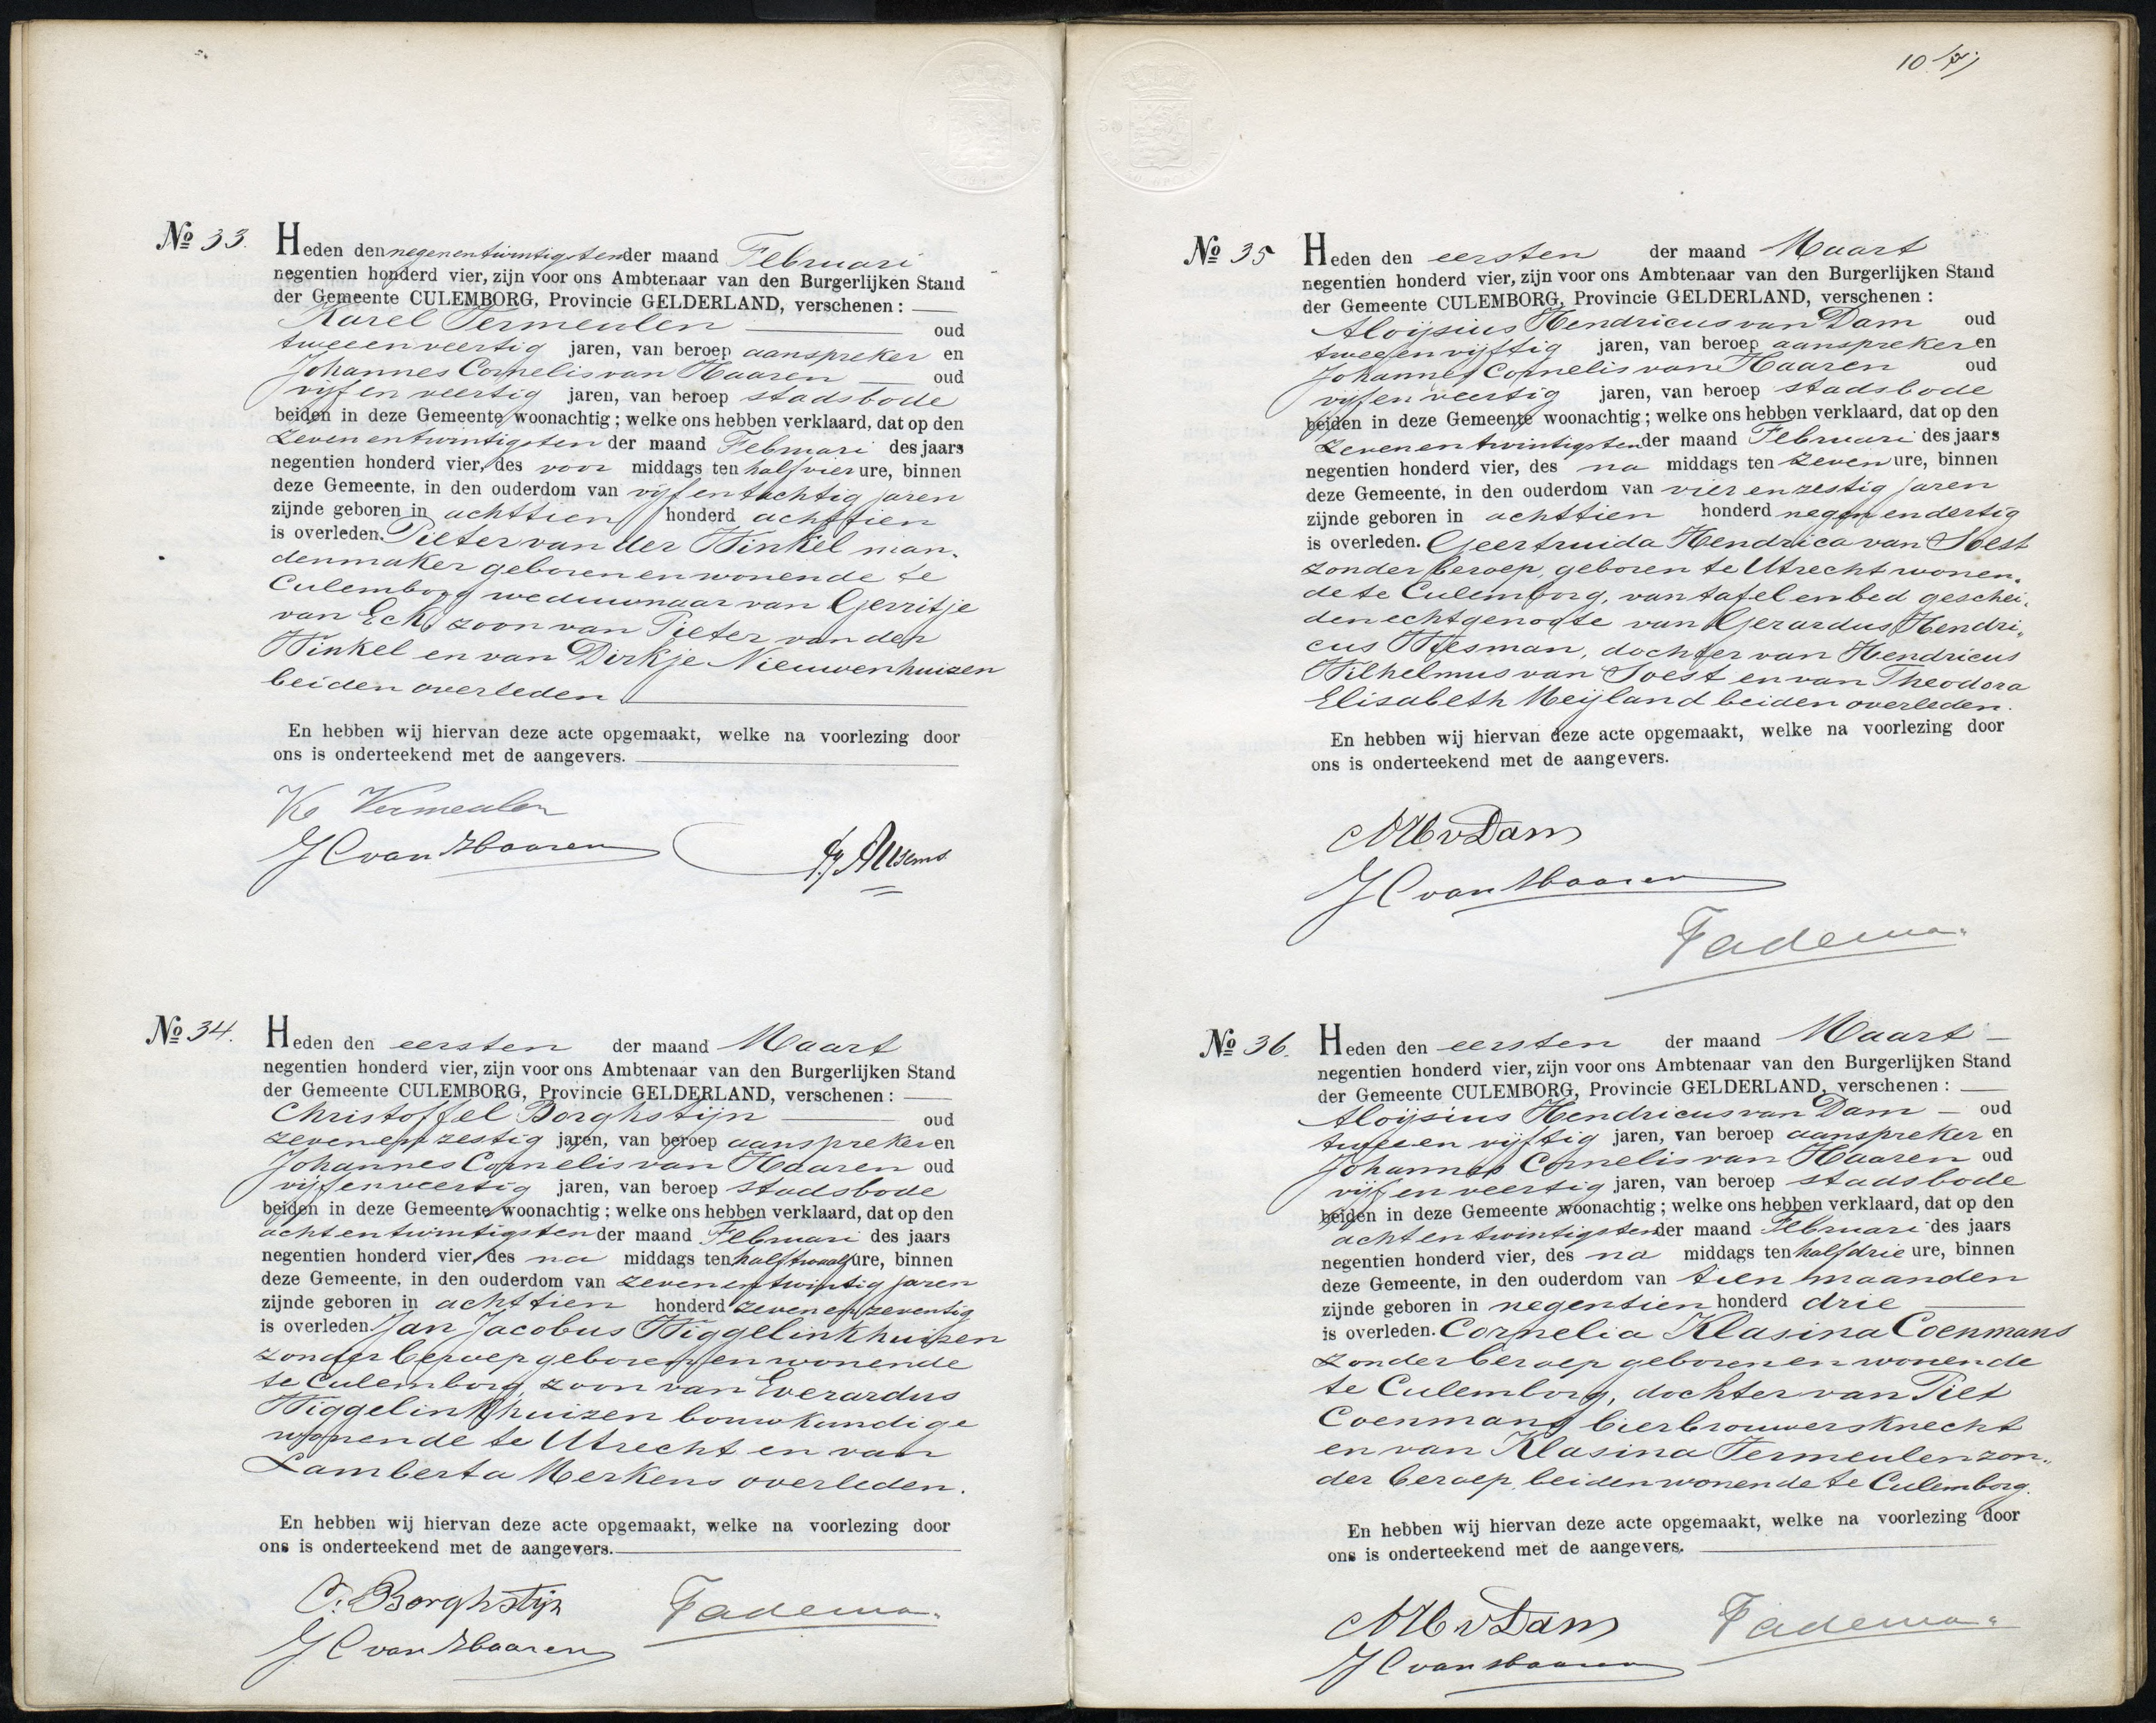 10
Nº 33.
Heden den negenentwintigsten der maand Februari
negentien honderd vier, zijn voor ons Ambtenaar van den Burgerlijken Stand
der Gemeente CULEMBORG, Provincie GELDERLAND, verschenen :
Karel Vermeulen oud
tweeenveertig jaren, van beroep aanspreker en
Johannes Cornelis van Haaren oud
vijfenveertig jaren, van beroep stadsbode
beiden in deze Gemeente woonachtig ; welke ons hebben verklaard, dat op den
zevenentwintigsten der maand Februari des jaars
negentien honderd vier, des voor middags ten half vier ure, binnen
deze Gemeente, in den ouderdom van vijfentachtig jaren
zijnde geboren in achttien honderd achttien
is overleden. Pieter van der Winkel man-
denmaker geboren en wonende te
Culemborg weduwnaar van Gerritje
van Eck, zoon van Pieter van der
Winkel en van Dirkje Nieuwenhuizen
beiden overleden
En hebben wij hiervan deze acte opgemaakt, welke na voorlezing door
ons is onderteekend met de aangevers.
K Vermeulen
J C van Haaren
Nº 34.
Heden den eersten der maand Maart
negentien honderd vier, zijn voor ons Ambtenaar van den Burgerlijken Stand
der Gemeente CULEMBORG, Provincie GELDERLAND, verschenen :
Christoffel Borghstijn oud
zevenenzestig jaren, van beroep aanspreker en
Johannes Cornelis van Haaren oud
vijfenveertig jaren, van beroep stadsbode
beiden in deze Gemeente woonachtig ; welke ons hebben verklaard, dat op den
achtentwintigsten der maand Februari des jaars
negentien honderd vier, des na middags ten half twaalf ure, binnen
deze Gemeente, in den ouderdom van zevenentwintig jaren
zijnde geboren in achttien honderd zevenenzeventig
is overleden. Jan Jacobus Wiggelinkhuizen
zonder beroep geboren en wonende
te Culemborg, zoon van Everardus
Wiggelinkhuizen bouwkundige
wonende te Utrecht en van
Lamberta Merkens overleden.
En hebben wij hiervan deze acte opgemaakt, welke na voorlezing door
ons is onderteekend met de aangevers.
C. Borghstijn
Fadema
J C van Haaren
Nº 35
Heden den eersten der maand Maart
negentien honderd vier, zijn voor ons Ambtenaar van den Burgerlijken Stand
der Gemeente CULEMBORG, Provincie GELDERLAND, verschenen :
Aloijsius Hendricus van Dam oud
tweeenvijftig jaren, van beroep aanspreker en
Johannes Cornelis van Haaren oud
vijfenveertig jaren, van beroep stadsbode
beiden in deze Gemeente woonachtig ; welke ons hebben verklaard, dat op den
zevenentwintigsten der maand Februari des jaars
negentien honderd vier, des na middags ten zeven ure, binnen
deze Gemeente, in den ouderdom van vier en zestig jaren
zijnde geboren in achttien honderd negen en dertig
is overleden. Geertruida Hendrica van Soest
zonder beroep, geboren te Utrecht wonen-
de te Culemborg, van tafel en bed geschei-
den echtgenoote van Gerardus Hendri-
cus Wiesman, dochter van Hendricus
Wilhelmus van Soest en van Theodora
Elisabeth Meijland beiden overleden.
En hebben wij hiervan deze acte opgemaakt, welke na voorlezing door
ons is onderteekend met de aangevers.
AH v Dam
J C van Haaren
Fadema
Nº 36.
Heden den eersten der maand Maart
negentien honderd vier, zijn voor ons Ambtenaar van den Burgerlijken Stand
der Gemeente CULEMBORG, Provincie GELDERLAND, verschenen :
Aloijsius Hendricus van Dam oud
tweeen vijftig jaren, van beroep aanspreker en
Johannes Cornelis van Haaren oud
vijfenveertig jaren, van beroep stadsbode
beiden in deze Gemeente woonachtig ; welke ons hebben verklaard, dat op den
achtentwintigsten der maand Februari des jaars
negentien honderd vier, des na middags ten half drie ure, binnen
deze Gemeente, in den ouderdom van tien maanden
zijnde geboren in negentien honderd drie
is overleden. Cornelia Klasina Coenmans
zonder beroep geboren en wonende
te Culemborg, dochter van Piet
Coenmans bierbrouwersknecht
en van Klasina Vermeulen zon-
der beroep, beiden wonende te Culemborg.
En hebben wij hiervan deze acte opgemaakt, welke na voorlezing door
ons is onderteekend met de aangevers.
AH v Dam
Fadema
J C van Haaren